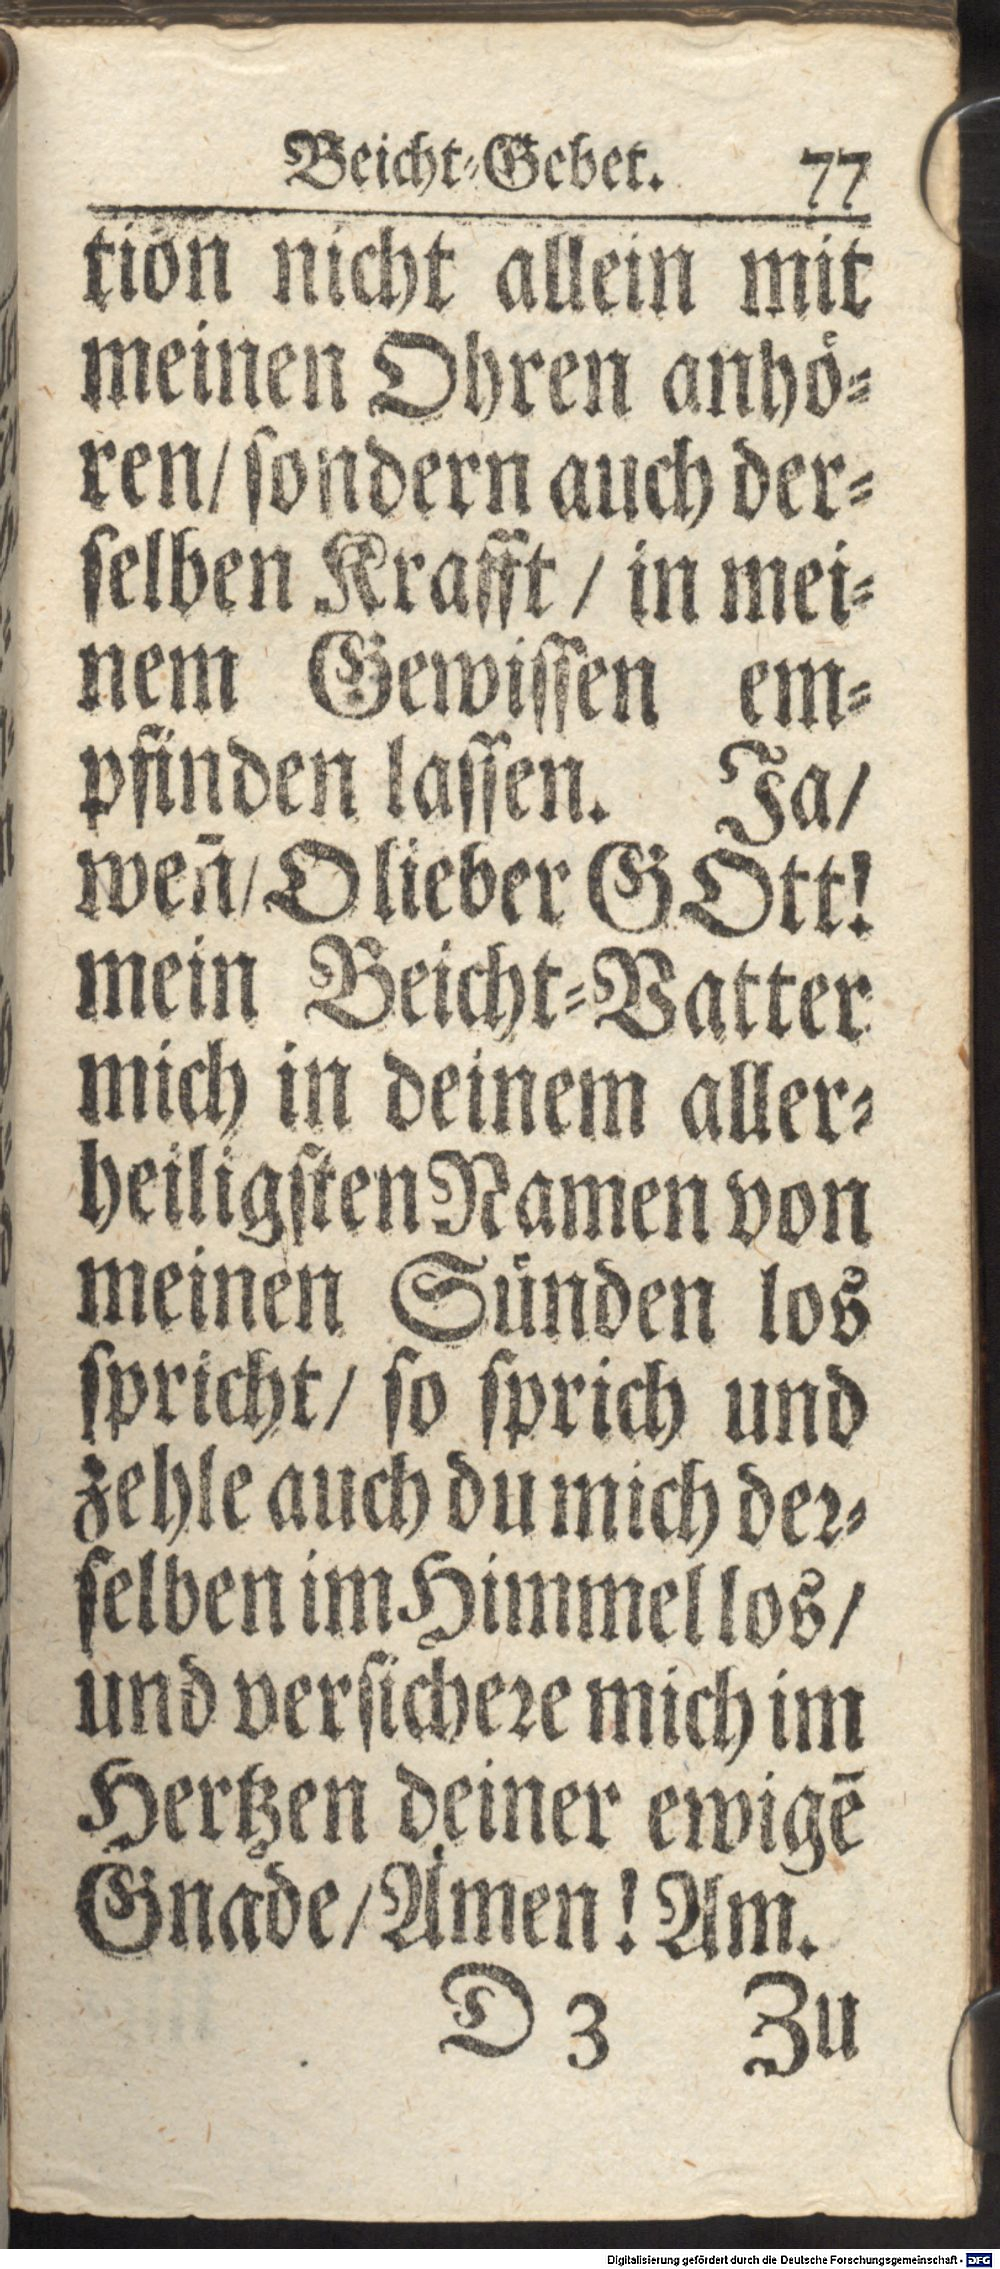 Beicht-Gebet. 77
tion nicht allein mit
meinen Ohren anhö-
ren/ sondern auch der-
selben Krafft / in mei-
nem Gewissen em-
pfinden lassen. Ja/
weñ/ O lieber GOtt!
mein Beicht-Vatter
mich in deinem aller-
heiligsten Namen von
meinen Sünden los
spricht/ so sprich und
zehle auch du mich der-
selben im Himmel los/
und versichere mich im
Hertzen deiner ewigē
Gnade/ Amen! Am.
D 3 Zu
Digitalisierung gefördert durch die Deutsche Forschungsgemeinschaft - DFG